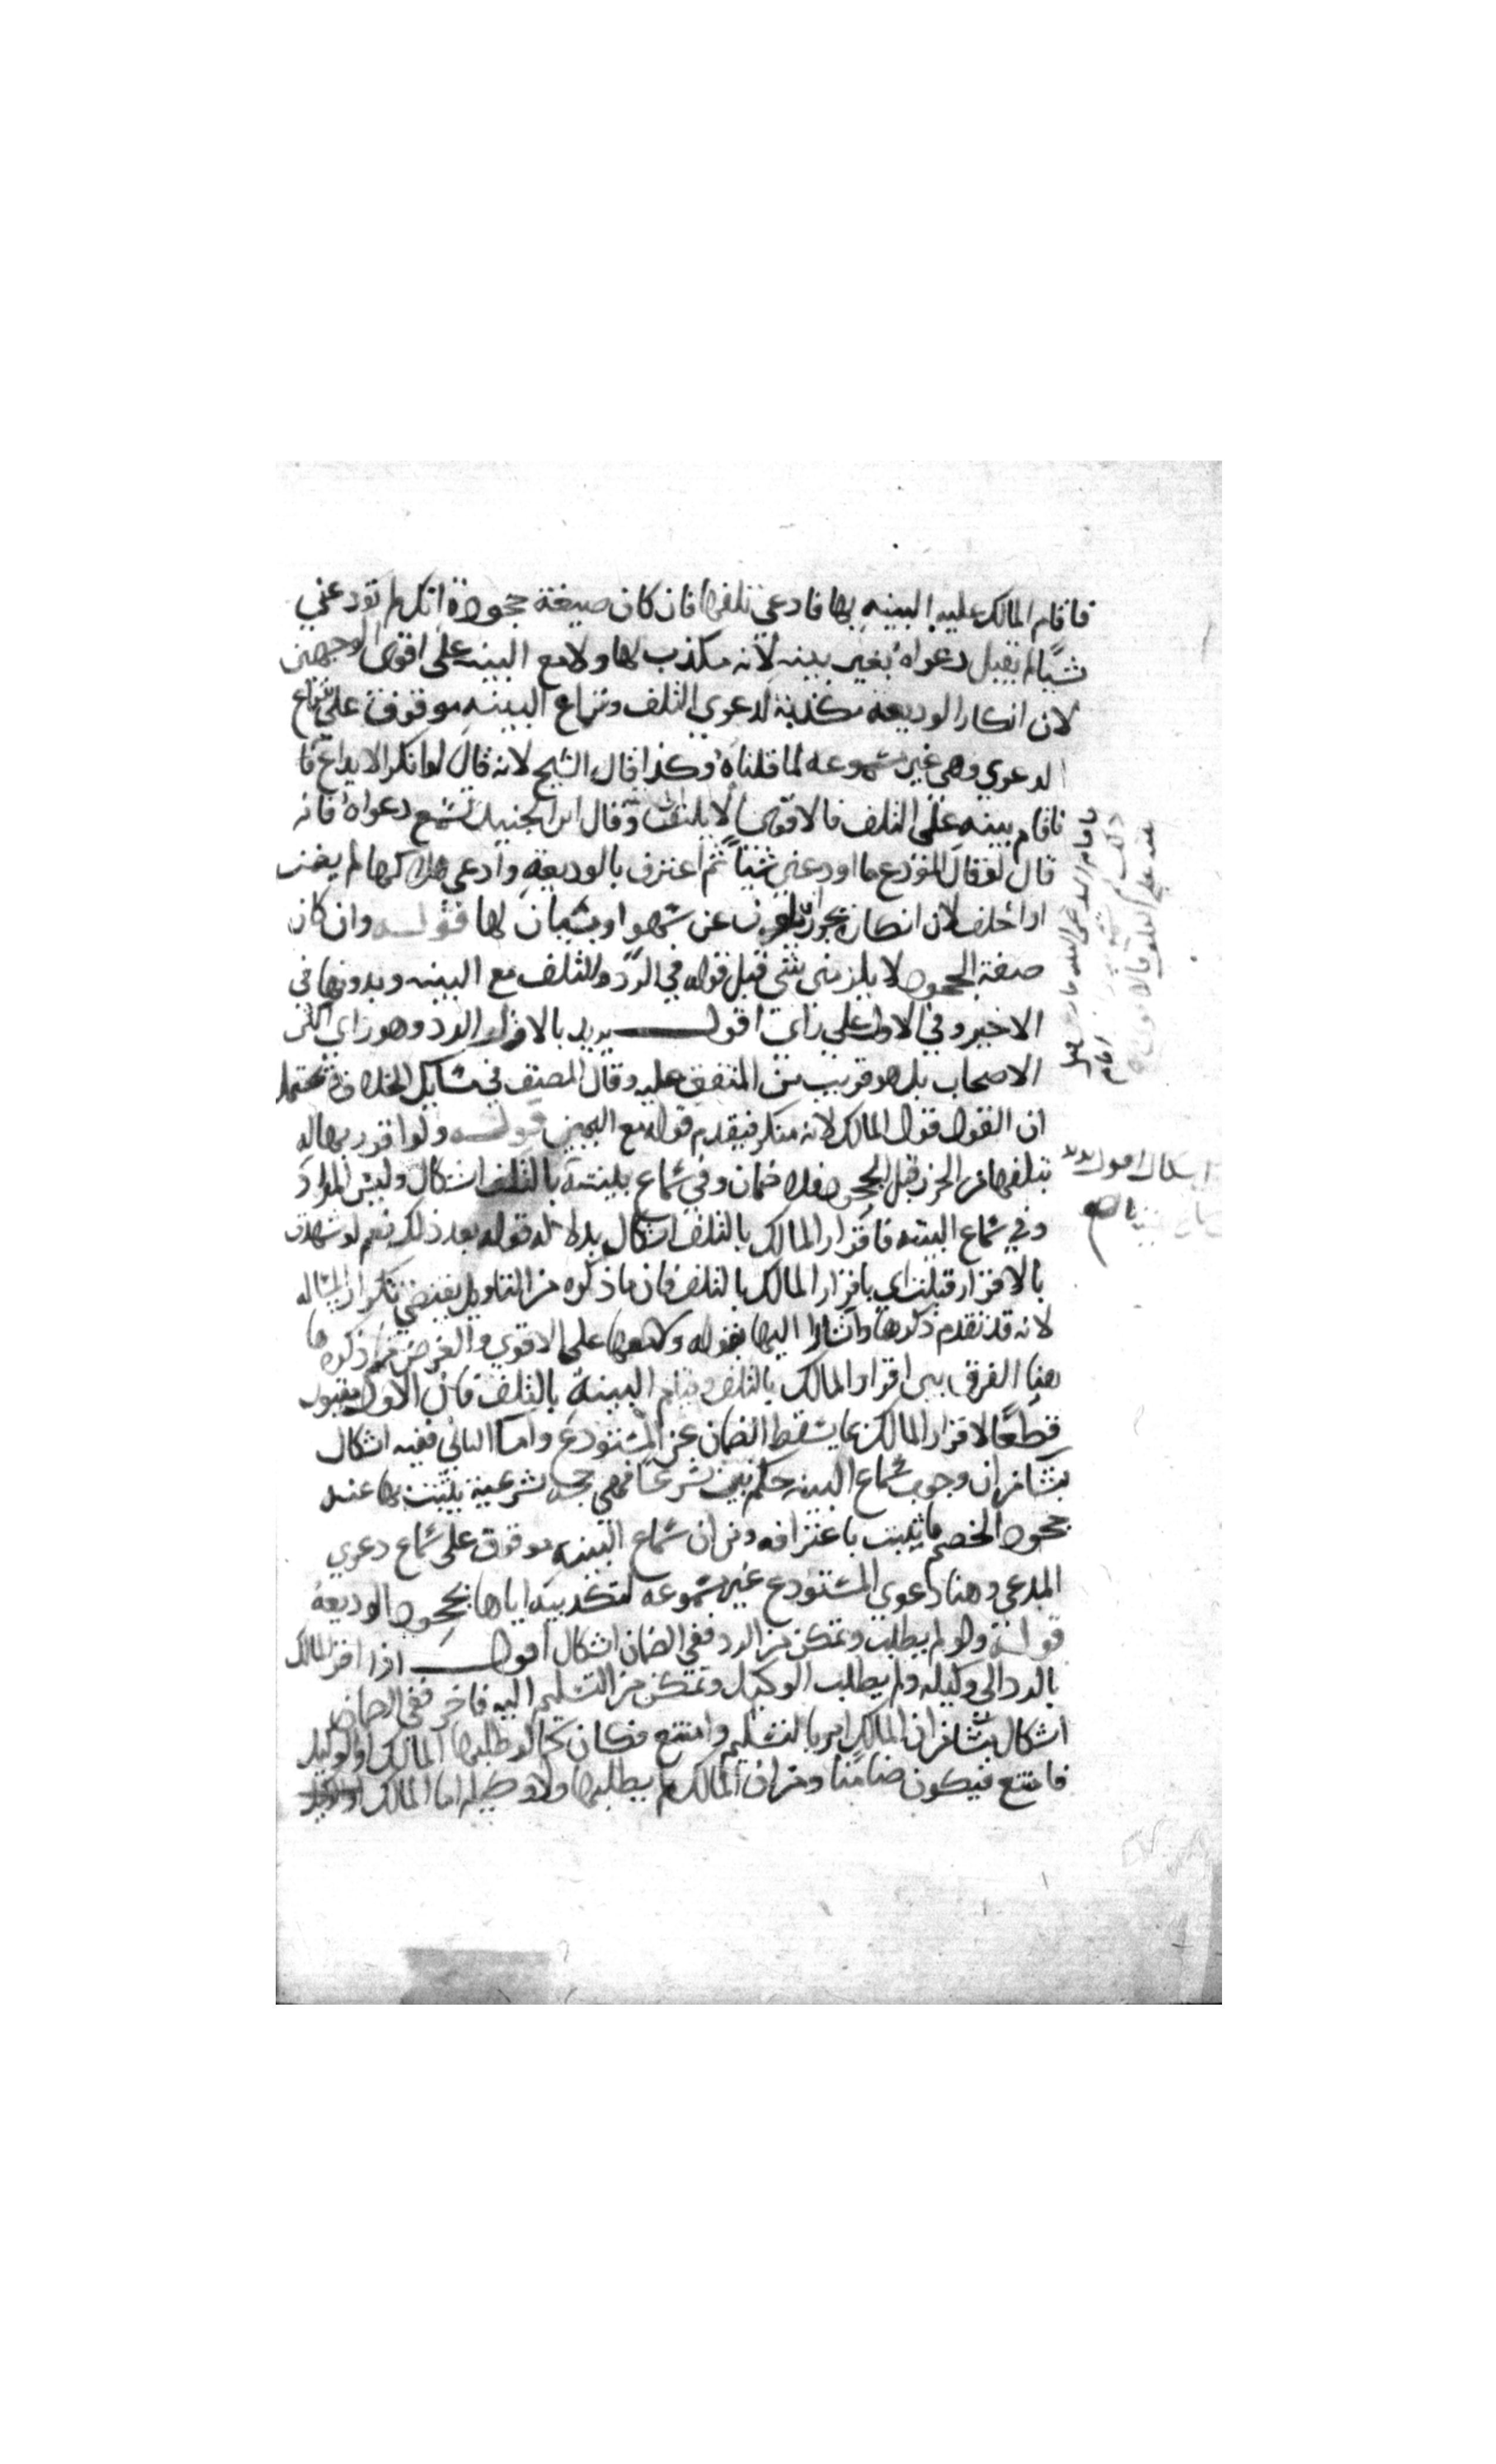 فاقام المالك عليه البينه بها فادعى تلفها فان كان صيغة جحوده انك لم تودعني
شيا لم تقبل دعواه بغير بينه لانه مكذب لها ولا مع البينه على اقوى الوجهين
لان انكار الوديعه مكذبة لدعوي التلف وسماع البينه موقوف على سماع
الدعوي وهي غير مسموعه لما قلناه وكذا قال الشيخ لانه قال لو انكر الايداع فا
فاقام بينه على التلف فالاقوى لا يلتفت وقال ابن الجنيد تسمع دعواه فانه
قال لو قال المودع ما اودعني شيا ثم اعترف بالوديعة وادعى هلاكها لم يضمن
اذا حلف لان انكاره يجوز ان يكون عن سهو او نسيان لها قوله وان كان
صفة الجحود لا يلزمني شي قبل قوله في الرد والتلف مع البينه وبدونها في
الاخير وفي الاول على راي اقول يريد بالاول الرد وهو راي اكثر
الاصحاب بل هو قريب من المتفق عليه وقال المصنف في مسايل الخلاف يحتمل
ان القول قول المالك لانه منكر فيقدم قوله مع اليمين قوله ولو اقر ربها له
بتلفها من الحرز قبل الجحود فلا ضمان وفي سماع بينته بالتلف اشكال وليس المراد
وفي سماع البينه فاقرار المالك بالتلف اشكال بدلالة قوله بعد ذلك نعم لو شهدت
بالاقرار قبلت اي باقرار المالك بالتلف فان ما ذكره من التاويل يقتضي تكرار المساله
لانه قد تقدم ذكرها واشار اليها بقوله ولا معها على الاقوي والغرض من ذكره ها
هنا الفرق بين اقرار المالك بالتلف وقيام البينة بالتلف فان الاول مقبول
قطعا لاقرار المالك بما يسقط الضمان عن المستودع واما الثاني ففيه اشكال
ينشا من ان وجوب سماع البينه حكم ثبت شرعا فهي حجه شرعية يثبت بها عند
جحود الخصم ما يثبت باعترافه ومن ان سماع البينه موقوف على سماع دعوي
المدعي وهنا دعوي المستودع غير مسموعه لتكذيبه اياها بجحود الوديعة
قوله ولو لم يطلب وتمكن من الرد ففي الضمان اشكال اقول اذا اقر المالك
بالرد الى وكيله ولم يطلب الوكيل وتمكن من التسليم اليه فاخر ففي الضمان
اشكال ينشا من ان المالك امره بالتسليم وامتنع فكان كما لو طلبها المالك او الوكيل
فامتنع فيكون ضامنا ومن ان المالك لم يطلبها ولا وكيله اما المالك
اشكال اقول يريد